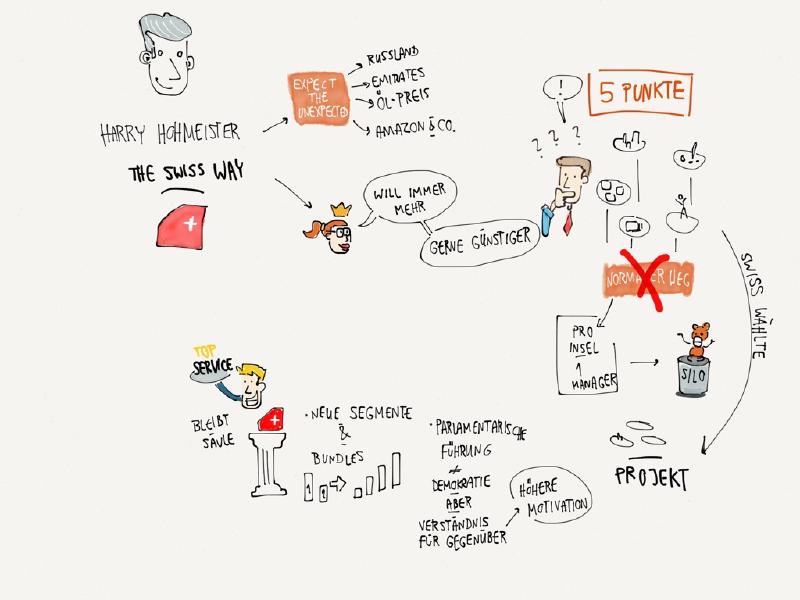 HARRY HOHMEISTER
THE SWISS WAY
EXPECT
THE
UNEXPECTED
RUSSLAND
EMIRATES
ÖL-PREIS
AMAZON & CO.
WILL IMMER
MEHR
GERNE GÜNSTIGER
!
? ? ?
5 PUNKTE
NORMALER WEG
PRO
INSEL
1
MANAGER
SILO
SWISS WÄHLTE
PROJEKT
TOP
SERVICE
BLEIBT
SÄULE
• NEUE SEGMENTE
&
BUNDLES
• PARLAMENTARISCHE
FÜHRUNG
≠
DEMOKRATIE
ABER
VERSTÄNDNIS
FÜR GEGENÜBER
HÖHERE
MOTIVATION